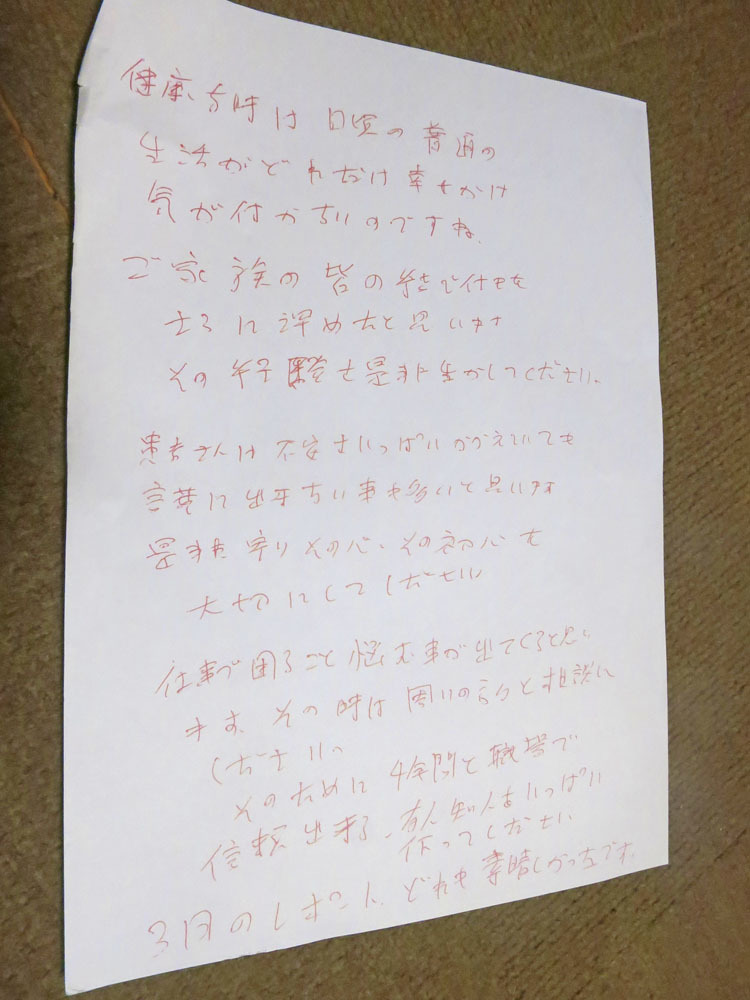 健康な時は日頃の普通の
生活がどれだけ幸せかは
気が付かないのですね、
ご家族の皆の結び付きを
さらに深めたと思います
その経験を是非生かしてください。
患者さんは不安をいっぱいかかえていても
言葉に出来ない事も多いと思います
是非 寄りその心、その初心を
大切にしてください
仕事で困ること悩む事が出てくると思い
ます、その時は周りの方々と相談に
ください。
そのために4年間と職場で
信頼出来る、友人知人をいっぱい
作ってください
3回のレポート、どれも素晴しかったです。